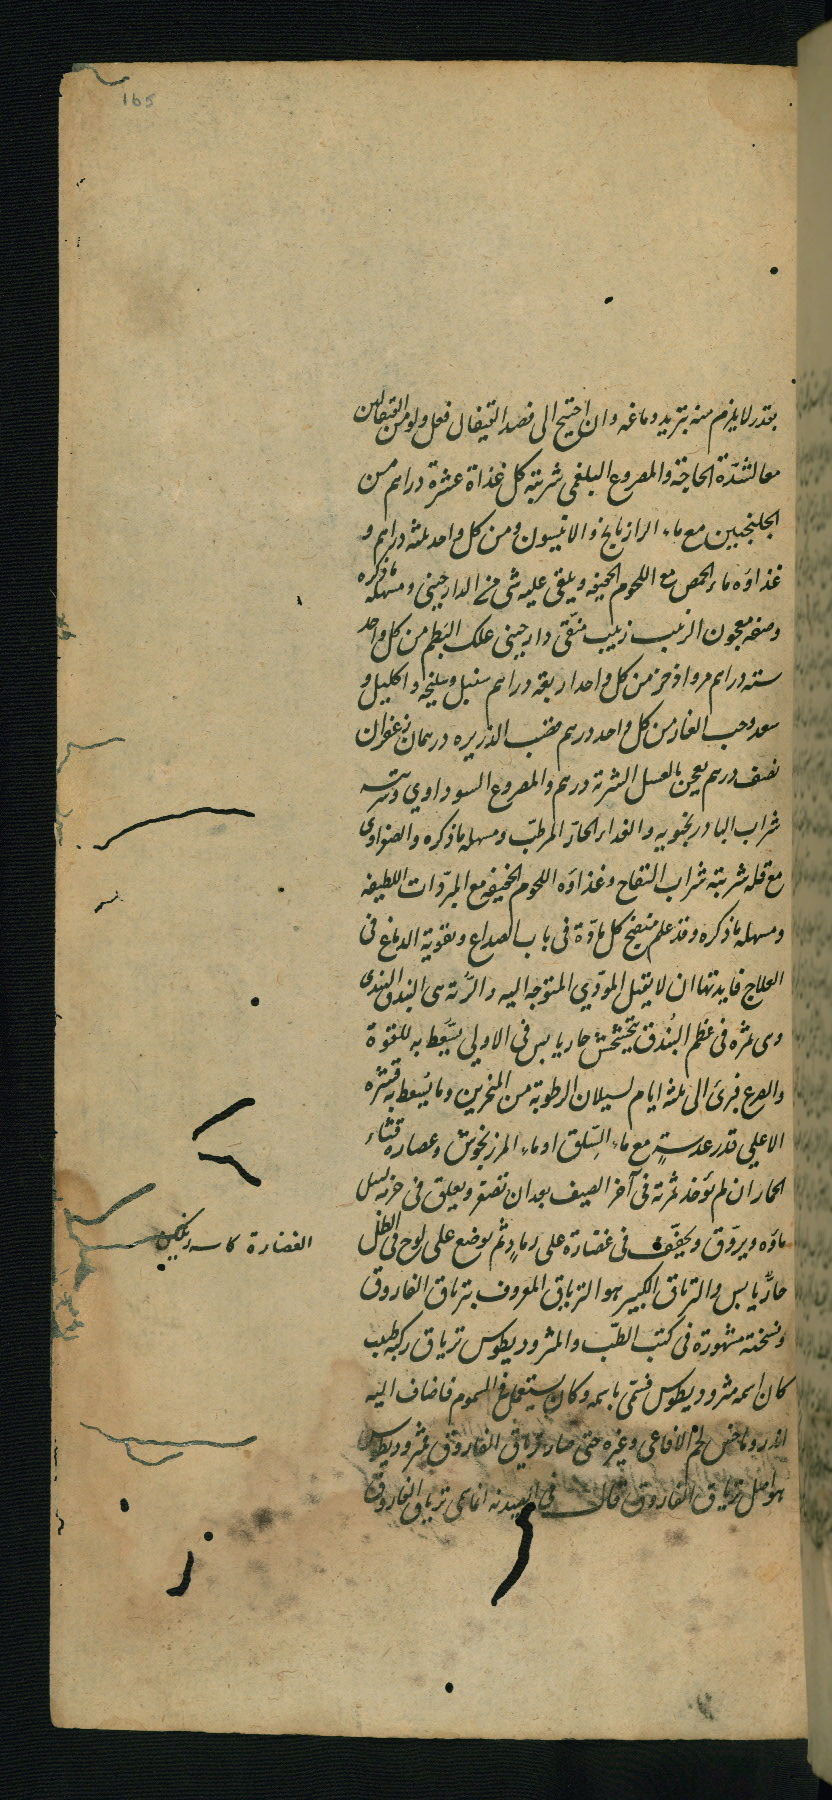 165
بقدر لا يلزم منه تبريد دماغه وان احتيج الى فصد القيفال فعل ولو من القيفالين
معا لشدّة الحاجة والمصروع البلغمي شربته كل غذاة عشرة دراهم من
الجلنجبين مع ماء الرازيانج والانيسون ومن كل واحد ثلثة دراهم و
غذاؤه ماء الحمص مع اللحوم الخفيفه ويلقى عليه شئ من الدارجيني ومسهله ماذكره
وصفه معجون الزبيب زبيب منقّى دارجيني علك البطم من كل واحد
ستة دراهم مر واذخر من كل واحد اربعة دراهم سنبل وسليخه واكليل و
سعد وحب الغار من كل واحد درهم قصب الذريره درهمان زعفران
نصف درهم يعجن بالعسل الشربة درهم والمصروع السوداوي وشربته
شراب البادرنجبويه والغذاء الحارّ المرطّب ومسهله ماذكره والصفراوى
مع قلته شربته شراب التفاح وغذاؤه اللحوم الخفيفه مع المبرّدات اللطيفه
ومسهله ماذكره وقد علم منضج كل مادّة فى باب الصداع وتقوية الدماغ فى
العلاج فايدتها ان لا يقبل الموذي المتوجه اليه والرّته هى البندق الهندى
وهى ثمره فى عظم البُندق يتخشخش حار يابس فى الاولي يسّعط به للقوة
والصرع فبرئ الى ثلثة ايام لسيلان الرطوبة من المنخرين وما يسّعط به قشره
الاعلي قدر عدستٍ مع ماء السّلق او ماء المرزنجوش وعصاره قثاء
الحمار ان لم يؤخذ ثمرته فى آخر الصيف بعد ان تصفر ويعلق فى خرقه ليسيل
ماؤه ويروّق ويجفّف فى غضارة على رمادٍ ثم يوضع على لوح فى الظلّ
حارٌّ يابس والترياق الكبير هو الترياق المعروف بترياق الفاروق
ونسخته مشهورة فى كتب الطبّ والمثروديطوس ترياق ركّبه طبيب
كان اسمه مثروديطوس فسمّى باسمه وكان يستعمل فى السموم فاضاف اليه
اندروماخس لحم الافاعى وغيره حتى صار ترياق الفاروق فمثروديطوس
هو اصل ترياق الفاروق قال فى الصيدنه انما سمى ترياق الفاروق
الغضارة كاسه رنكين